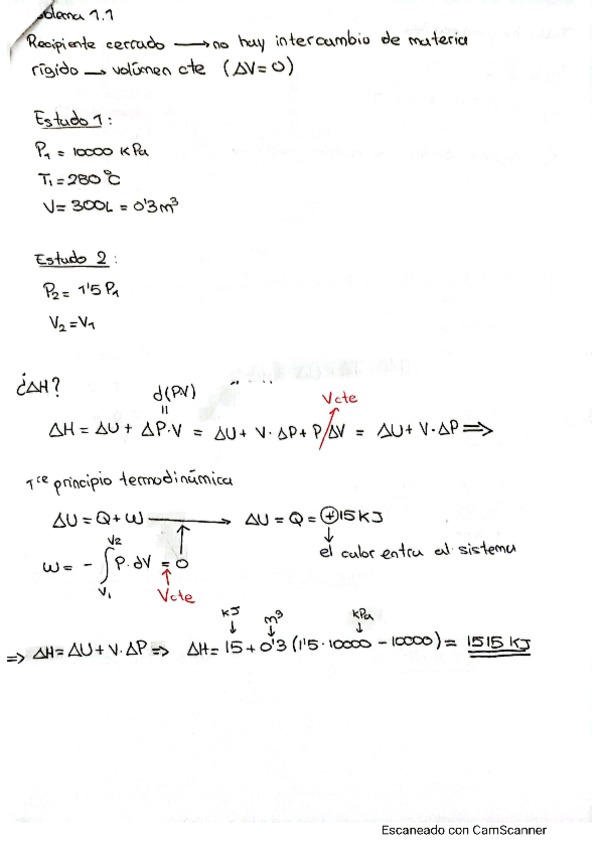 oblema 1.1
Recipiente cerrado → no hay intercambio de materia
rígido → volúmen cte (ΔV=0)
Estado 1:
P₁ = 10000 KPa
T₁ = 280 °C
V = 300L = 0'3 m³
Estado 2:
P₂ = 1'5 P₁
V₂ = V₁
¿ΔH?
d(PV)
Vcte
ΔH = ΔU + ΔP·V = ΔU + V·ΔP + P/ΔV = ΔU + V·ΔP ⟹
1er principio termodinámica
ΔU = Q + W → ΔU = Q = ⊕15 KJ
el calor entra al sistema
W = - ∫ V₁ V₂ P·dV = 0
Vcte
KJ m³ KPa
⟹ ΔH = ΔU + V·ΔP ⟹ ΔH = 15 + 0'3 (1'5·10000 - 10000) = 1515 KJ
Escaneado con CamScanner